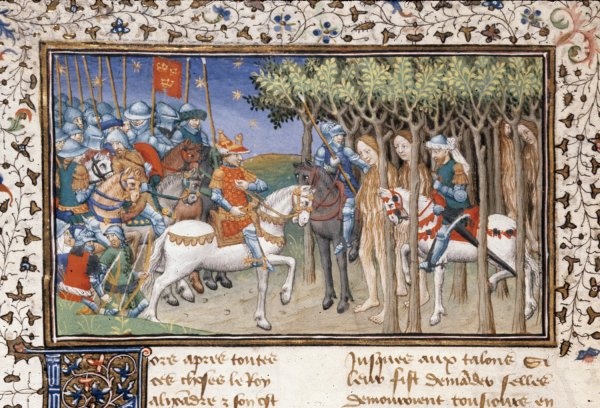 Lors apres toutes
ces choses le Roy
alixadre & son ost
Jusques aux talons Si
leur fist demāder selles
demouroient tousiours en